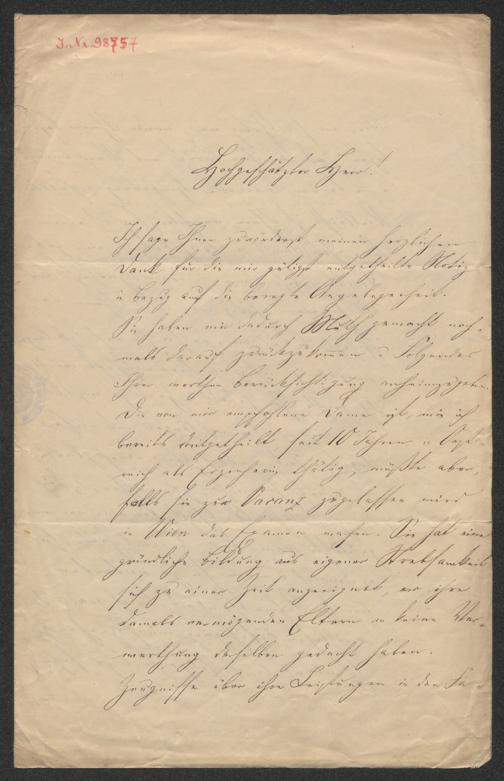 J. Nr. 98757
Hochgeschätzter Herr!
Ich sage Ihnen zuvörderst meinen herzlichen
Dank für die mir gütigst mitgetheilte Notiz
in Bezug auf die beregte Angelegenheit.
Sie haben mir dadurch Muth gemacht noch-
mals darauf zurückzukommen u Folgendes
Ihrer werthen Berücksichtigung anheimzugeben.
Die von mir empfohlene Dame ist, wie ich
bereits mitgetheilt seit 10 Jahren in
reich als Erzieherin thätig, müßte aber,
falls sie zur Vacanz zugelassen wird
in Wien das Examen machen. Sie hat eine
gründliche Bildung aus eigener Strebsamkeit
sich zu einer Zeit angeeignet, wo ihre
damals vermögenden Eltern an keine Ver-
werthung derselben gedacht haben.
Zeugnisse über ihre Leistungen in den